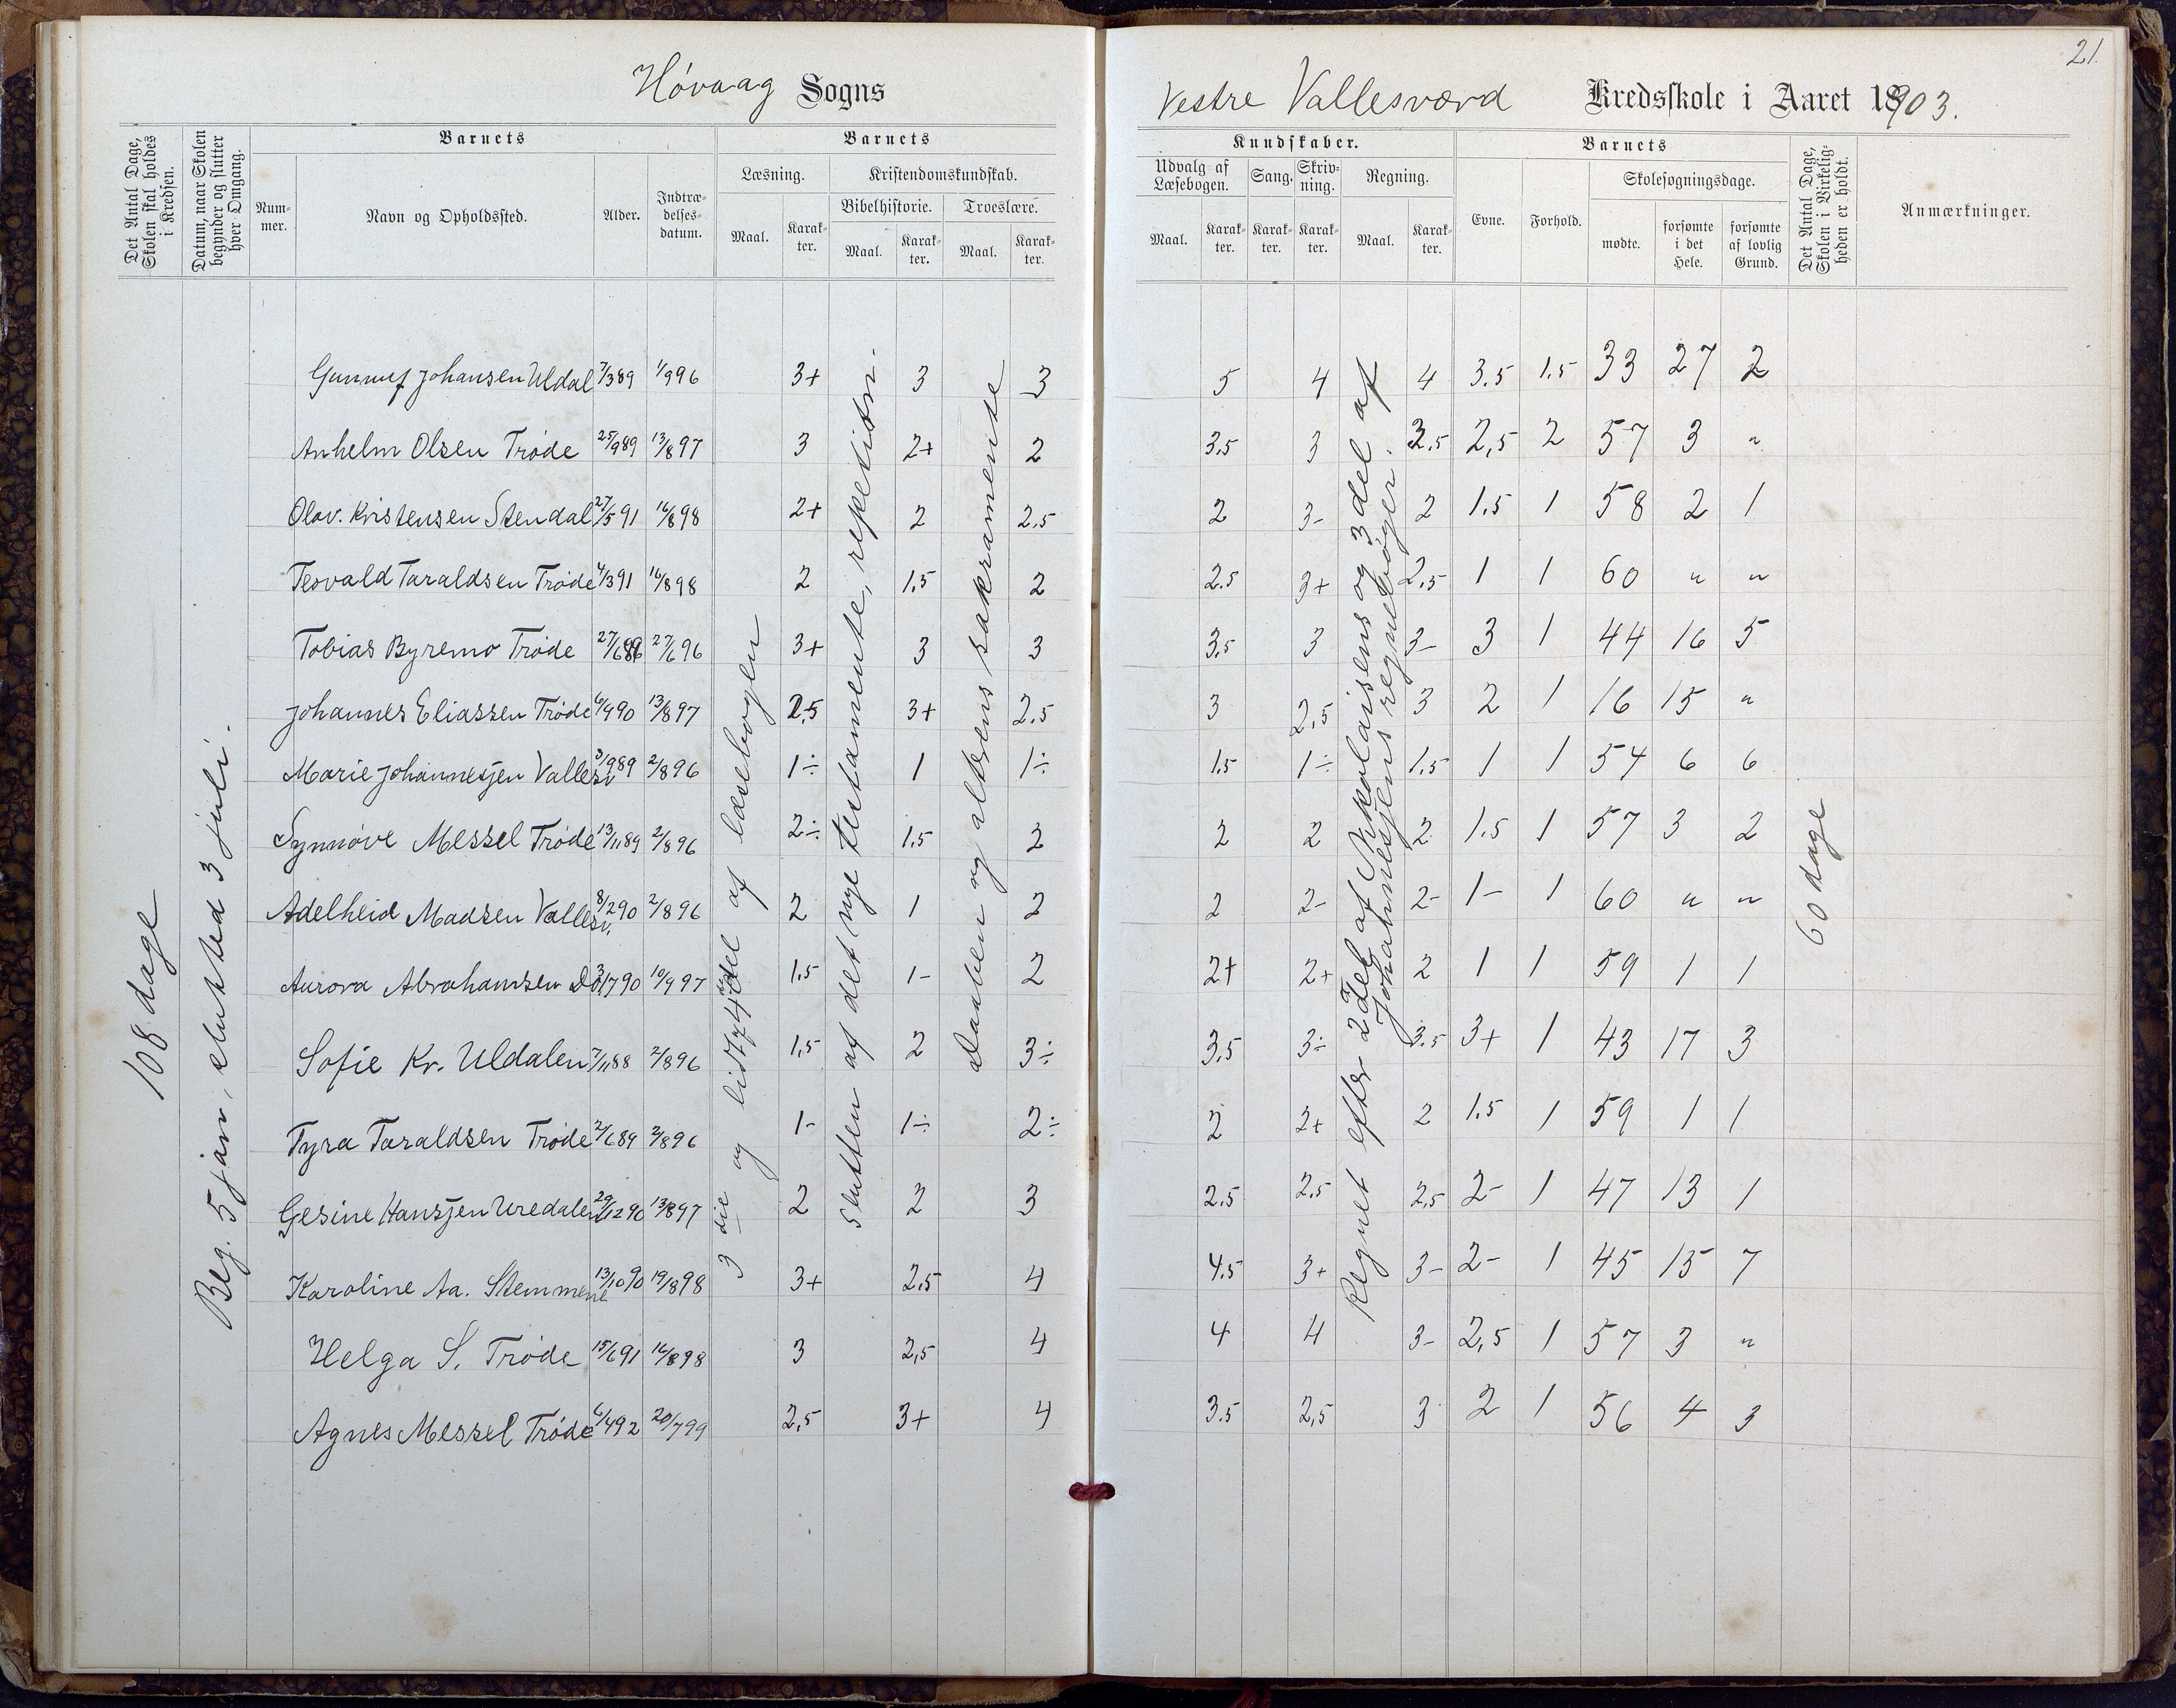 21.
Høvaag Sogns
Vestre Vallesværd Kredsskole i Aaret 1903.
Det Antal Dage, Skolen skal holdes i Kredsen.
Datum, naar Skolen begynder og slutter hver Omgang.
Barnets
Nummer.
Navn og Opholdssted.
Alder.
Indtrædelsesdatum.
Barnets
Læsning.
Maal.
Karakter.
Kristendomskundskab.
Bibelhistorie.
Maal.
Karakter.
Troeslære.
Maal.
Karakter.
Kundskaber.
Udvalg af Læsebogen.
Maal.
Karakter.
Sang.
Karakter.
Skrivning.
Karakter.
Regning.
Maal.
Karakter.
Barnets
Evne.
Forhold.
Skolesøgningsdage.
mødte.
forsømte i det Hele.
forsømte af lovlig Grund.
Det Antal Dage, Skolen i Virkeligheden er holdt.
Anmærkninger.
108 dage
Beg. 5 jan, slutted 3 juli.
3 die og lidt af 4de del af læsebogen
Slutten af det nye testamente, repetition.
Daaben og alterens sakramente
Regnet efter 2 del af Nikolaisens og 3 del af
Johannesjens regnebøger.
60 dage
Johansen Uldal 7/3 89 1/9 96 3+ 3 3 5 4 4 3.5 1.5 33 27 2
Anhelm Olsen Trøde 25/9 89 13/8 97 3 2+ 2 3.5 3 2.5 2,5 2 57 3 "
Olav. Kristensen Stendal 27/5 91 16/8 98 2+ 2 2.5 2 3- 2 1.5 1 58 2 1
Teovald Taraldsen Trøde 4/3 91 16/8 98 2 1.5 2 2.5 3+ 2,5 1 1 60 " "
Tobias Byremo Trøde 27/6 89 27/6 96 3+ 3 3 3.5 3 3- 3 1 44 16 5
Johannes Eliassen Trøde 6/9 90 13/8 97 2.5 3+ 2.5 3 2,5 3 2 1 16 15 "
Marie Johannesjen Vallesv 3/9 89 2/8 96 1÷ 1 1÷ 1.5 1÷ 1.5 1 1 54 6 6
Synnøve Messel Trøde 13/11 89 2/8 96 2÷ 1.5 2 2 2 2 1.5 1 57 3 2
Adelheid Madsen Vallesv. 8/2 90 2/8 96 2 1 2 2 2- 2- 1- 1 60 " "
Aurora Abrahamsen Do 3/7 90 10/9 97 1.5 1- 2 2+ 2+ 2 1 1 59 1 1
Sofie Kr. Uldalen 7/11 88 2/8 96 1,5 2 3÷ 3.5 3÷ 3.5 3+ 1 43 17 3
Tyra Taraldsen Trøde 2/6 89 2/8 96 1- 1÷ 2÷ 2 2+ 2 1.5 1 59 1 1
Gesine Hansjen Uredalen 29/12 90 13/8 97 2 2 3 2.5 2.5 2,5 2- 1 47 13 1
Karoline Aa. Stemmene 13/10 90 19/8 98 3+ 2.5 4 4.5 3+ 3- 2- 1 45 15 7
Helga S. Trøde 15/6 91 16/8 98 3 2,5 4 4 4 3- 2,5 1 57 3 "
Agnes Messel Trøde 6/4 92 20/7 99 2,5 3+ 4 3.5 2,5 3 2 1 56 4 3